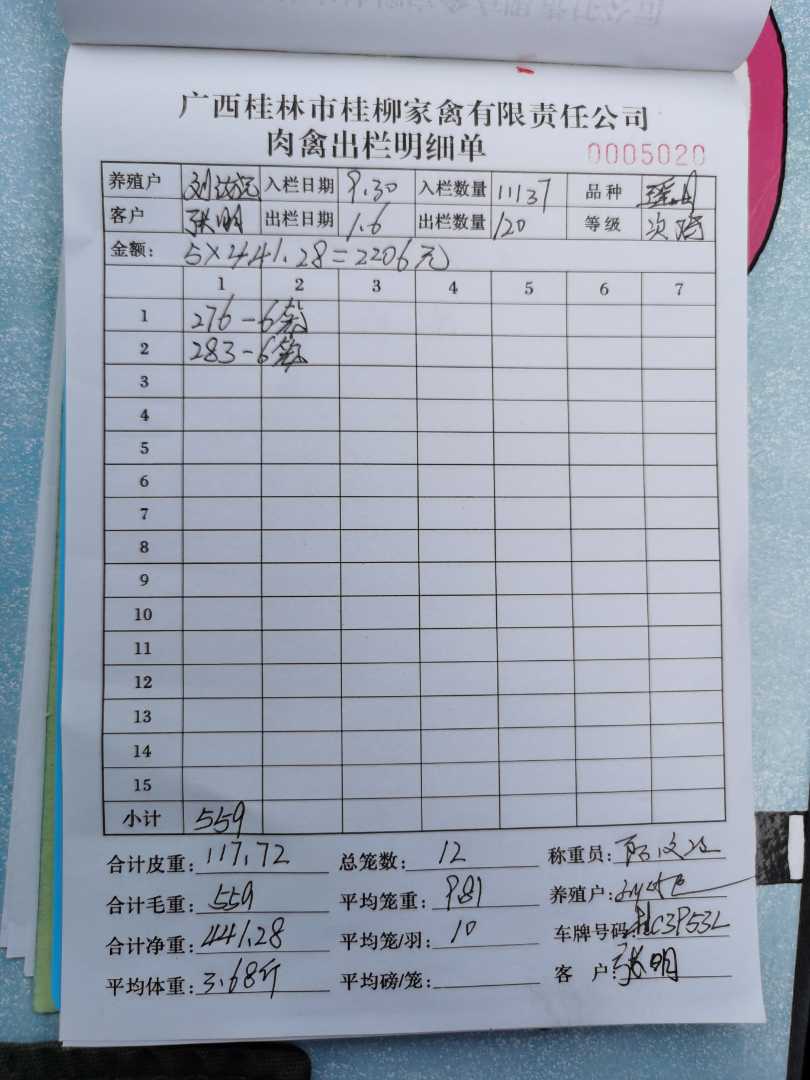 广西桂林市桂柳家禽有限责任公司
肉禽出栏明细单 0005020
养殖户 刘 入栏日期 9.30 入栏数量 11137 品种
客户 张明 出栏日期 1.6 出栏数量 120 等级 次鸡
金额: 5×441.28=2206元
1 2 3 4 5 6 7
1 276-6笼
2 283-6笼
3
4
5
6
7
8
9
10
11
12
13
14
15
小计 559
合计皮重: 117.72 总笼数: 12 称重员:
合计毛重: 559 平均笼重: 981 养殖户:
合计净重: 441.28 平均笼/羽: 10 车牌号码: 桂C3P53L
平均体重: 3.68斤 平均磅/笼: 客 户: 张明